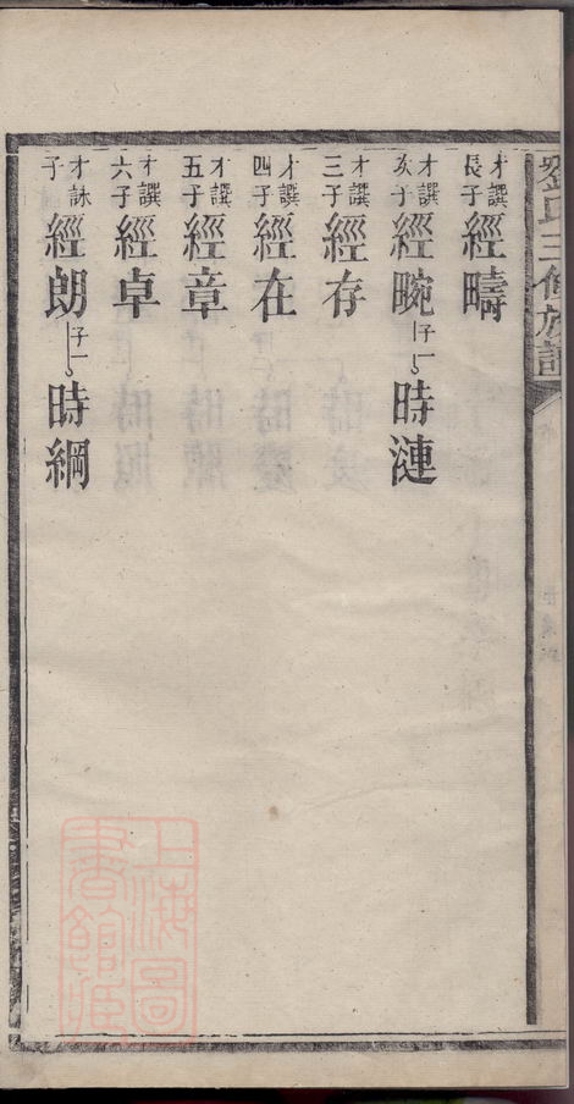 劉氏三修族譜
才譔長子 經疇
才譔次子 經畹 子一 時漣
才譔三子 經存
才譔四子 經在
才譔五子 經章
才譔六子 經卓
才訸子 經朗 子一 時綱
上海圖書館藏